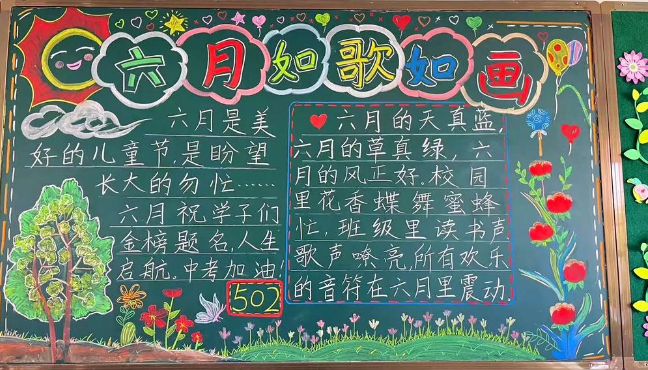 六月如歌如画
六月是美
好的儿童节,是盼望
长大的匆忙……
六月祝学子们
金榜题名,人生
启航,中考加油!
502
六月的天真蓝,
六月的草真绿,六
月的风正好.校园
里花香蝶舞蜜蜂
忙,班级里读书声
歌声嘹亮,所有欢乐
的音符在六月里震动.